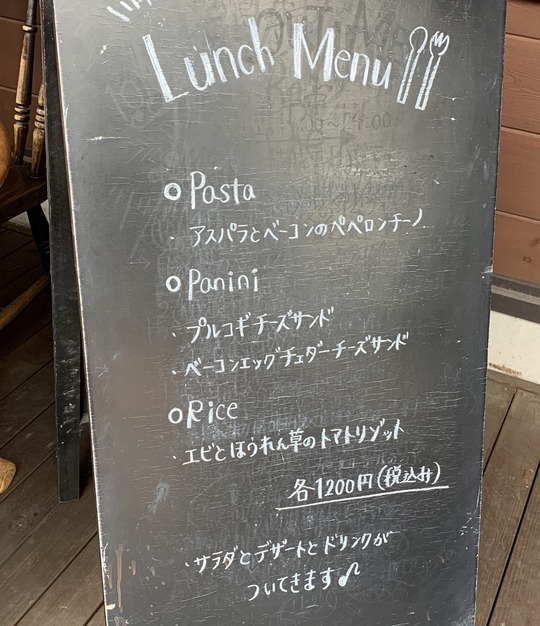 Lunch Menu
○Pasta
・アスパラとベーコンのペペロンチーノ
○Panini
・プルコギチーズサンド
・ベーコンエッグチェダーチーズサンド
○Rice
・エビとほうれん草のトマトリゾット
各1200円(税込み)
・サラダとデザートとドリンクが
ついてきます♪